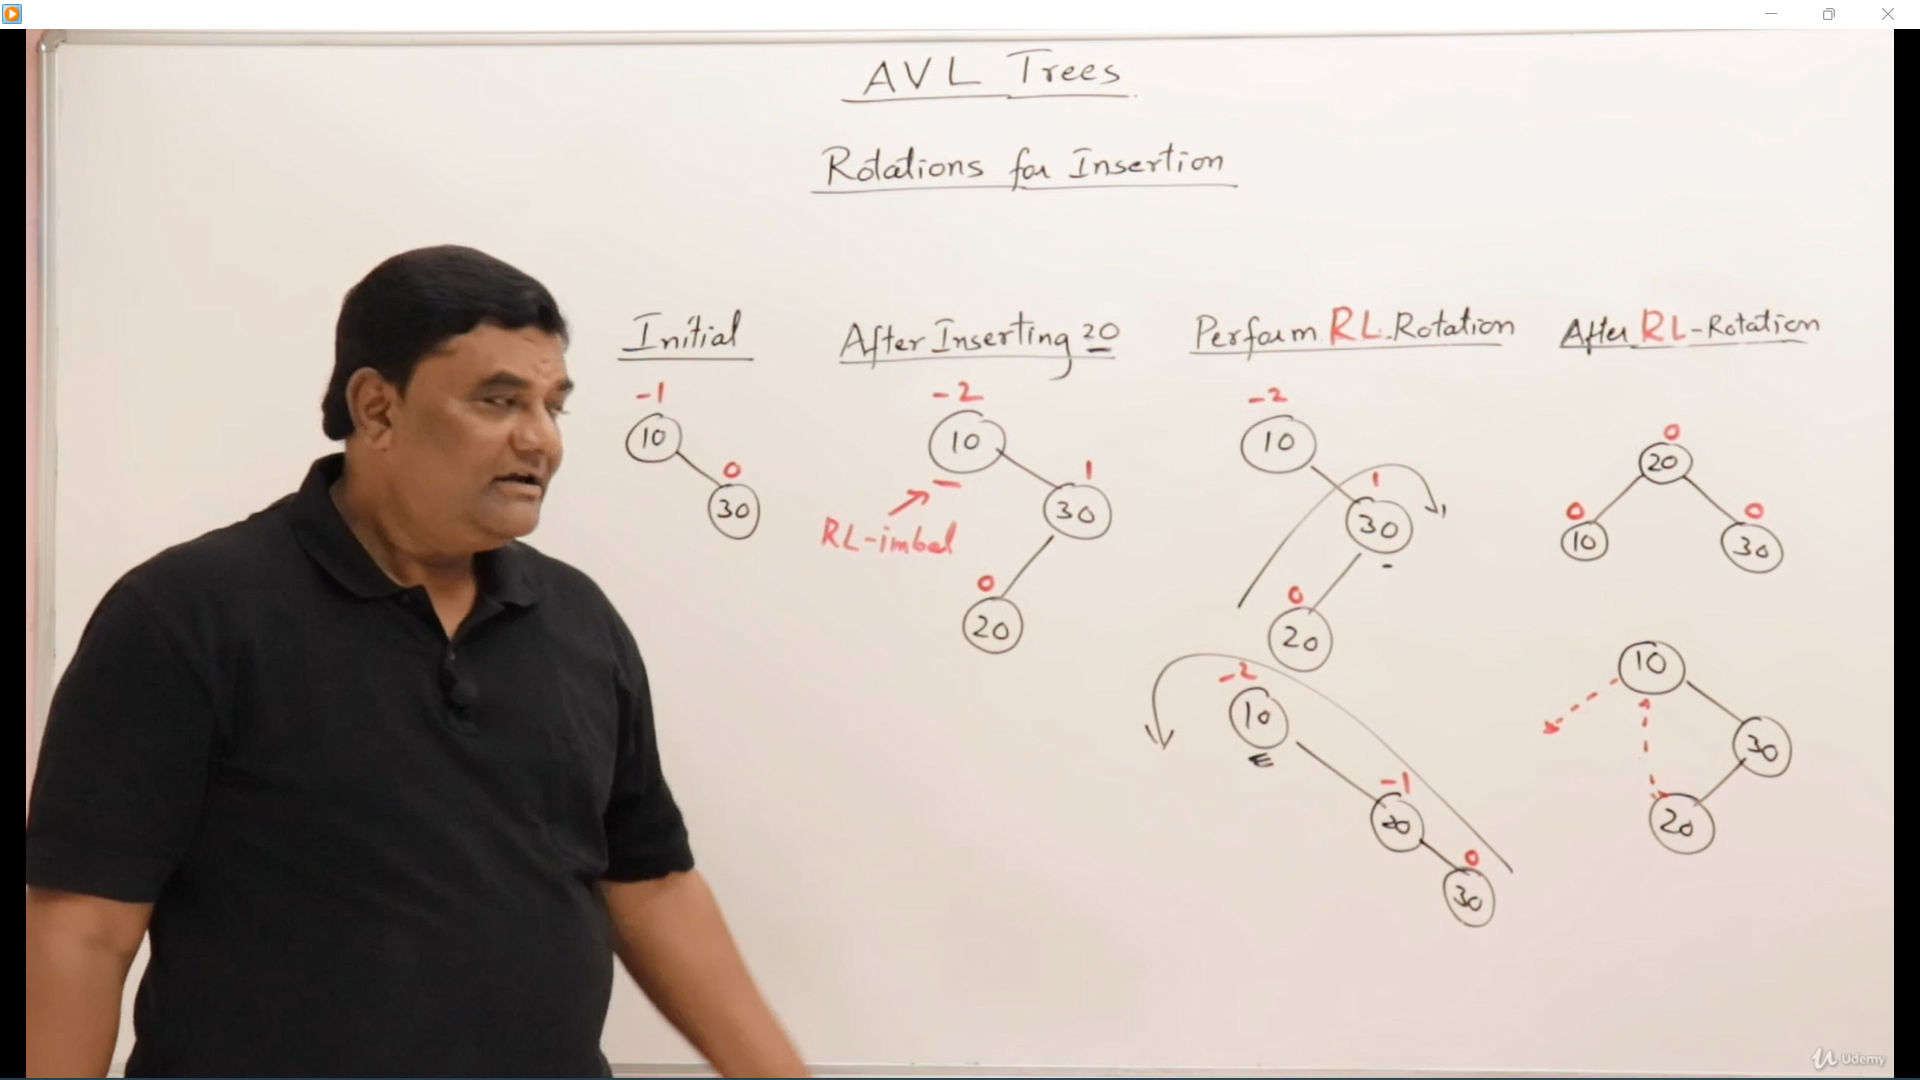 AVL Trees
Rotations for Insertion
Initial
-1
10
0
30
After Inserting 20
-2
10
1
30
RL-imbal
0
20
Perform RL-Rotation
-2
10
1
30
0
20
-2
10
-1
20
0
30
After RL-Rotation
0
20
0
10
0
30
10
30
20
Udemy